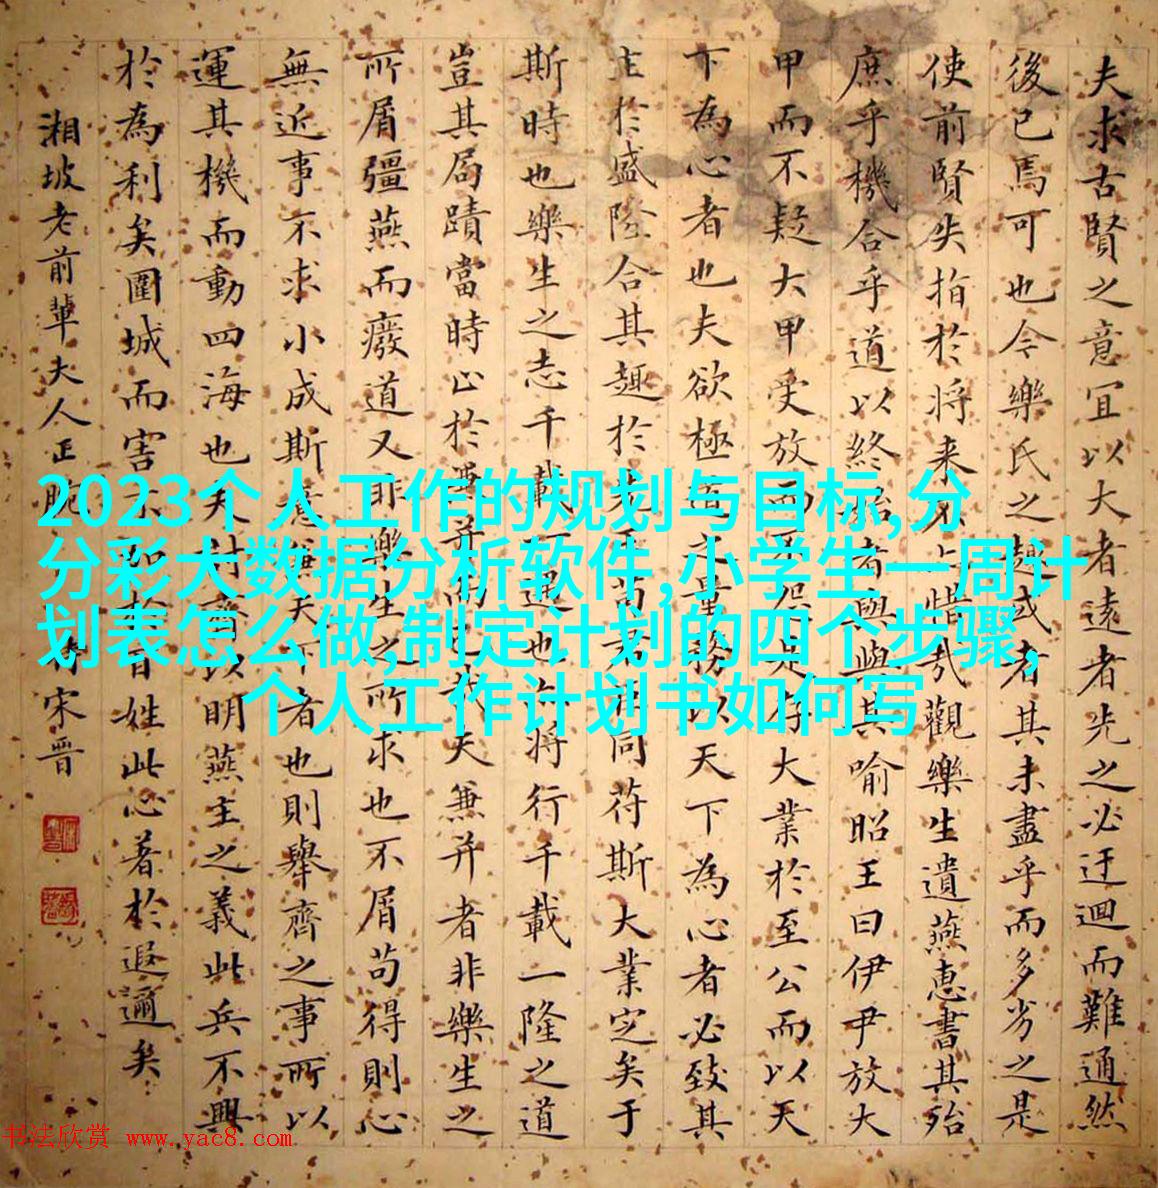 夫求古賢之意宜以大者遠者先之必迂迴而難通然
後已焉可也今樂氏之趣或者其未盡乎而多劣之是
使前賢失指於将来不惜哉觀樂生遺燕惠書其殆
庶乎機合乎道以終始者與與其喻昭王曰伊尹放大
甲而不疑大甲受放而不怨是存大業於至公而以天
下為心者也夫欲極道之量務以天下為心者必致其
主於盛隆合其趣於先王苟君臣同苻斯大業定矣于
斯時也樂生之志千載一遇也亦将行千載一隆之道
豈其局蹟當時止於兼并而已哉夫兼并者非樂生之
所屑彊燕而廢道又非樂生之所求也不屑苟得則心
無近事不求小成斯意兼天下者也則舉齊之事所以
運其機而動四海也夫討齊以明燕主之義此兵不興
於為利矣圍城而害不加於百姓此心著於遐邇矣
湘坡老前輩夫人正腕
宋晋
2023个人工作的规划与目标,分
分彩大数据分析软件,小学生一周计
划表怎么做,制定计划的四个步骤,
个人工作计划书如何写
书法欣赏 www.yac8.com